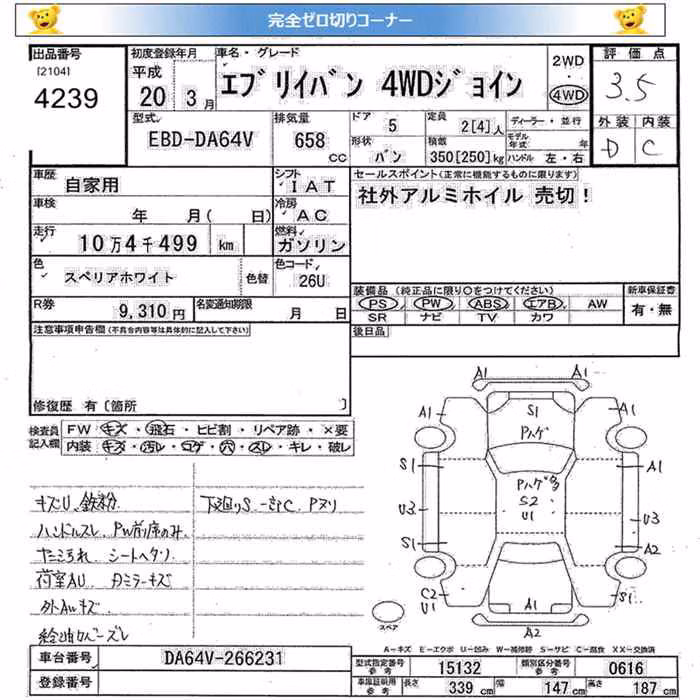 完全ゼロ切りコーナー
出品番号 初度登録年月 車名・グレード 評価点
[2104] 平成 エブリイバン 4WDジョイン 2WD ・ 4WD 3.5
4239 20 3月 外装 内装
型式 排気量 ドア 5 定員 2[4]人 ディーラー・並行 D C
EBD-DA64V 658 CC 形状 バン 積数 350[250]kg モデル年式 年 ハンドル 左・右
車歴 自家用 シフト IAT セールスポイント(正常に機能するものに限ります)
車検 年 月( 日) 冷房 AC 社外アルミホイル 売切!
走行 10万4千499 km 燃料 ガソリン
色 スペリアホワイト 色替 色コード 26U
装備品(純正品に限り○をつけてください) 新車保証書
R券 9,310円 名変通知期限 月 日 PS PW ABS エアB AW 有・無
SR ナビ TV カワ
注意事項申告欄(不具合内容等は具体的に記入して下さい) 後日品
修復歴 有[箇所 ]
検査員記入欄 FW キズ・飛石・ヒビ割・リペア跡・×要
内装 キズ・汚レ・コゲ・穴・スレ・キレ・破レ
キズU、鉄粉 下廻りS 一部C Pヌリ
ハンドルスレ PW前席のみ
シートヘタリ
荷室AU
外AWキズ
A1 A1
A1 S1 A1
Pハゲ
S1 Pハゲ A1
S2
U3 U1 U3
S1 A2
C2 S1
U1 A1
スペア A2
A-キズ E-エクボ U-凹み W-補修跡 S-サビ C-腐食 XX-交換済
車台番号 DA64V-266231 型式指定番号 参考 15132 類別区分番号 参考 0616
登録番号 車庫証明用 参考 長さ 339 cm 幅 147 cm 高さ 187 cm